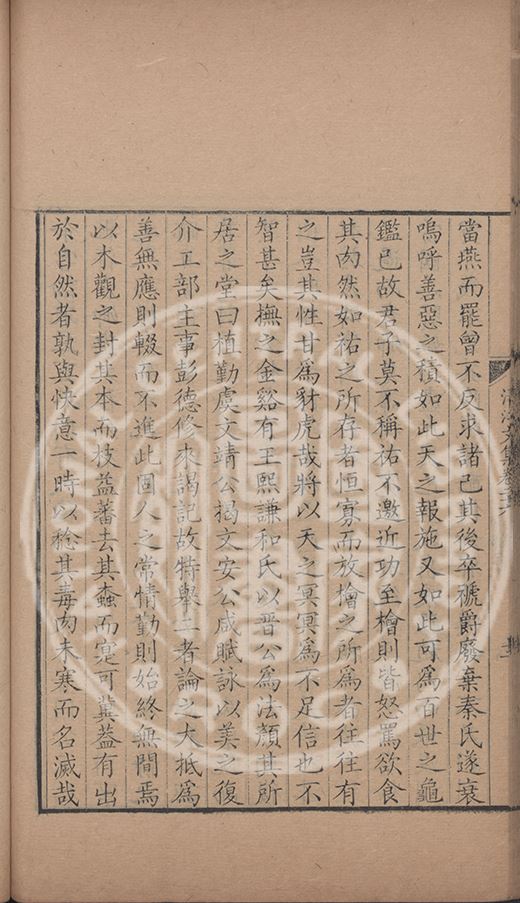 當燕而罷曾不反求諸己其後卒褫爵廢棄秦氏遂衰
嗚呼善惡之積如此天之報施又如此可為百世之龜
鑑已故君子莫不稱祐不邀近功至檜則皆怒罵欲食
其肉然如祐之所存者恒寡而放檜之所為者往往有
之豈其性甘為豺虎哉將以天之冥冥為不足信也不
智甚矣撫之金谿有王熙謙和氏以晉公為法顏其所
居之堂曰植勤虞文靖公揭文安公咸賦詠以美之復
介工部主事彭德修來謁記故特舉二者論之大抵為
善無應則輟而不進此固人之常情勤則始終無間焉
以木觀之封其本而枝益蕃去其蠹而寔可冀蓋有出
於自然者孰與快意一時以稔其毒肉未寒而名滅哉